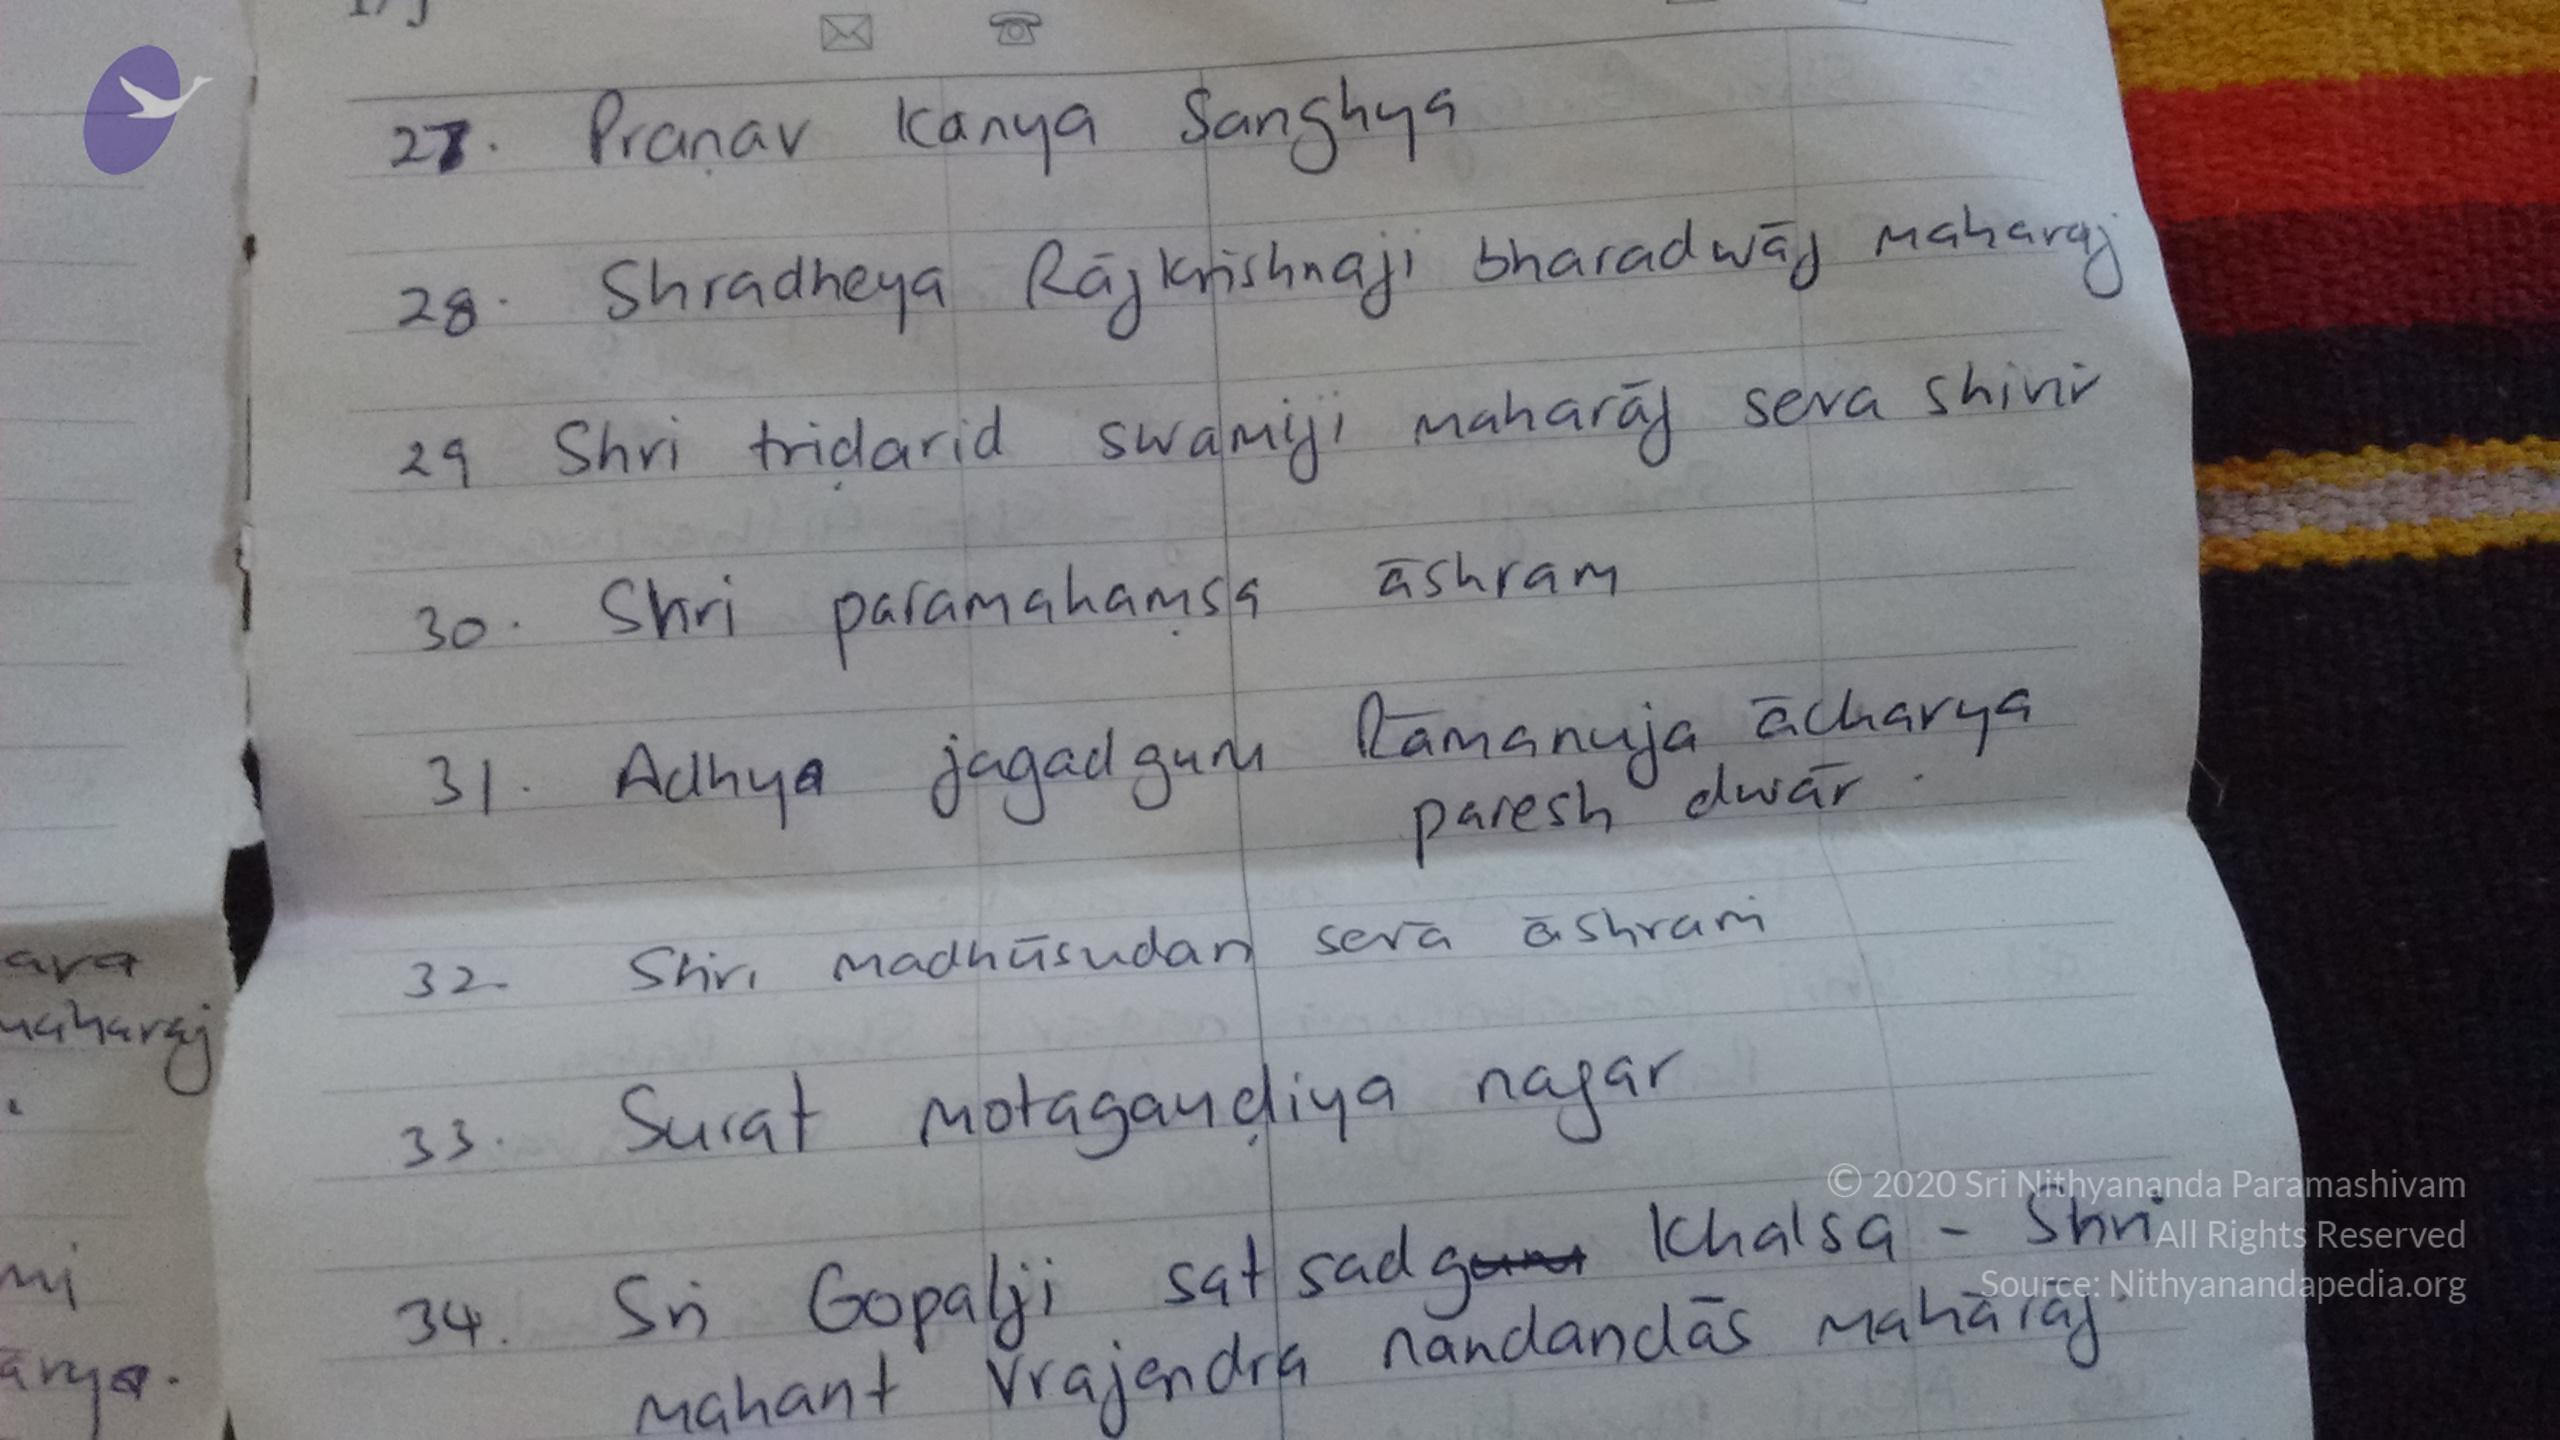 27. Praṇav Kanya Sanghya
28. Shradheya Rājkrishnaji bharadwāj maharaj
29 Shri triḍarid swamiji maharāj seva shivir
30. Shri paramahaṃsa āshram
31. Adhya jagadguru Rāmanuja ācharya
paresh dwār.
32. Shri madhūsudan sevā āshram
33. Surat motagauḍiya nagar
34. Sri Gopalji satsadguru Khalsa - Shri
mahant Vrajendra nandandās mahārāj.
ava
maharaj
mi
ārya.
© 2020 Sri Nithyananda Paramashivam
All Rights Reserved
Source: Nithyanandapedia.org